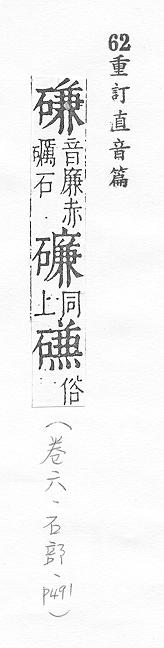 62重訂直音篇
磏音廉赤
礪石.
𥖝同上
俗
(卷六、石部、p491)